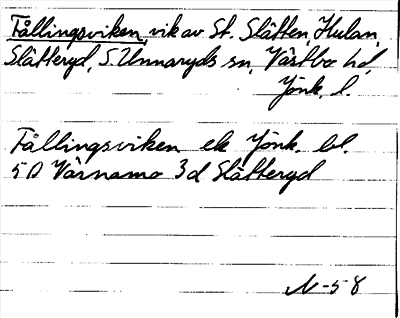 Fållingsviken, vik av St. Slätten, Hulan,
Slätteryd, S. Unnaryds sn, Västbo hd,
Jönk. l.
Fållingsviken ek Jönk. bl.
5D Värnamo 3d Slätteryd
N-58